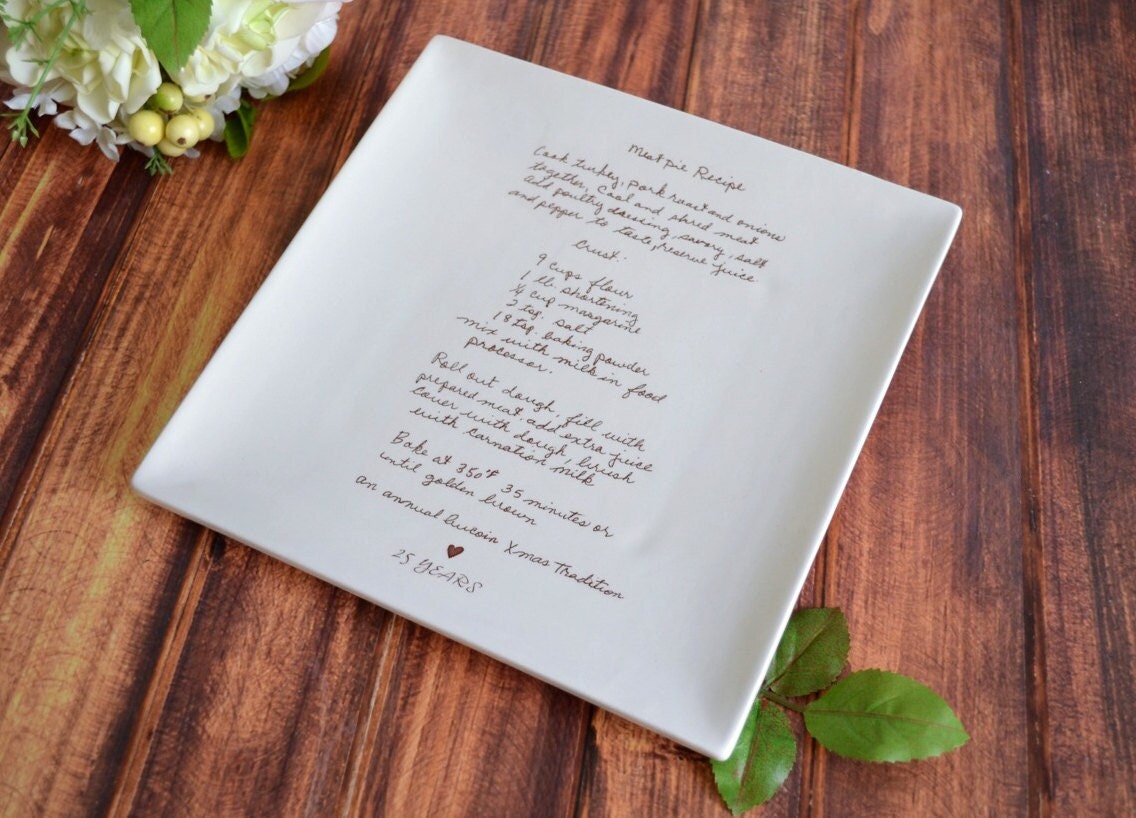 Meat pie Recipe
Cook turkey, pork roast and onions
together, cool and shred meat
add poultry dressing, savory, salt
and pepper to taste, reserve juice
Crust:
9 cups flour
1 lb. shortening
¼ cup margarine
2 tsp. salt
18 tsp. baking powder
mix with milk in food
processor.
Roll out dough, fill with
prepared meat. add extra juice
cover with dough, brush
with carnation milk
Bake at 350° 35 minutes or
until golden brown
an annual Xmas Tradition
♥
25 YEARS